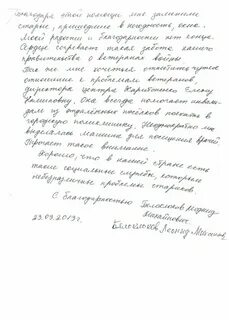 Благодаря этой помощи мы заменили
старые, пришедшие в негодность, окна.
Моей радости и благодарности нет конца.
Сердце согревает такая забота нашего
правительства о ветеранах войны
Так же мне хочется отметить чуткое
отношение к проблемам ветеранов,
директора центра Елену
Она всегда помогает инвали-
дам из отдалённых посёлков попасть в
городскую поликлинику. Неоднократно мне
выделялась машина для посещения врачей
Трогает такое внимание.
Хорошо, что в нашей стране есть
такие социальные службы, которым
небезразличны проблемы стариков.
С благодарностью Леонид
23.09.2019г.
Леонид